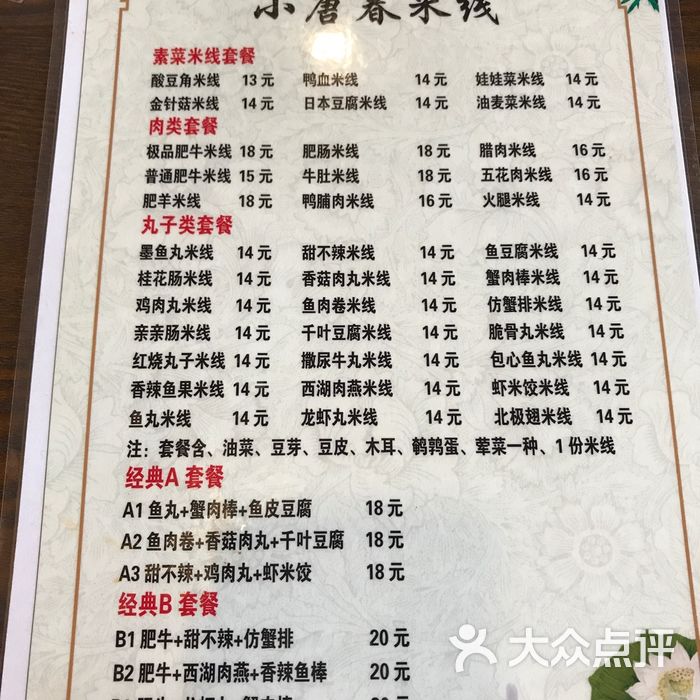 小唐春米线
素菜米线套餐
酸豆角米线 13 元 鸭血米线 14 元 娃娃菜米线 14 元
金针菇米线 14 元 日本豆腐米线 14 元 油麦菜米线 14 元
肉类套餐
极品肥牛米线 18 元 肥肠米线 18 元 腊肉米线 16 元
普通肥牛米线 15 元 牛肚米线 18 元 五花肉米线 16 元
肥羊米线 18 元 鸭脯肉米线 16 元 火腿米线 14 元
丸子类套餐
墨鱼丸米线 14 元 甜不辣米线 14 元 鱼豆腐米线 14 元
桂花肠米线 14 元 香菇肉丸米线 14 元 蟹肉棒米线 14 元
鸡肉丸米线 14 元 鱼肉卷米线 14 元 仿蟹排米线 14 元
亲亲肠米线 14 元 千叶豆腐米线 14 元 脆骨丸米线 14 元
红烧丸子米线 14 元 撒尿牛丸米线 14 元 包心鱼丸米线 14 元
香辣鱼果米线 14 元 西湖肉燕米线 14 元 虾米饺米线 14 元
鱼丸米线 14 元 龙虾丸米线 14 元 北极翅米线 14 元
注：套餐含、油菜、豆芽、豆皮、木耳、鹌鹑蛋、荤菜一种、1 份米线
经典A 套餐
A1 鱼丸+蟹肉棒+鱼皮豆腐 18 元
A2 鱼肉卷+香菇肉丸+千叶豆腐 18 元
A3 甜不辣+鸡肉丸+虾米饺 18 元
经典B 套餐
B1 肥牛+甜不辣+仿蟹排 20 元
B2 肥牛+西湖肉燕+香辣鱼棒 20 元
大众点评